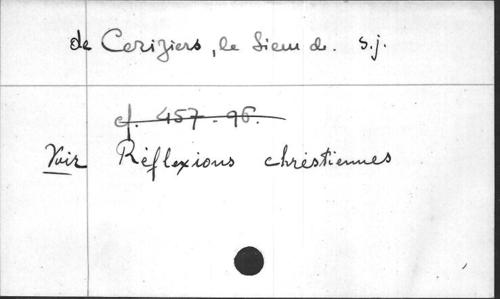 de Ceriziers, le Sieur de. s.j.
cf. 457.96.
Voir Réflexions chrestiennes